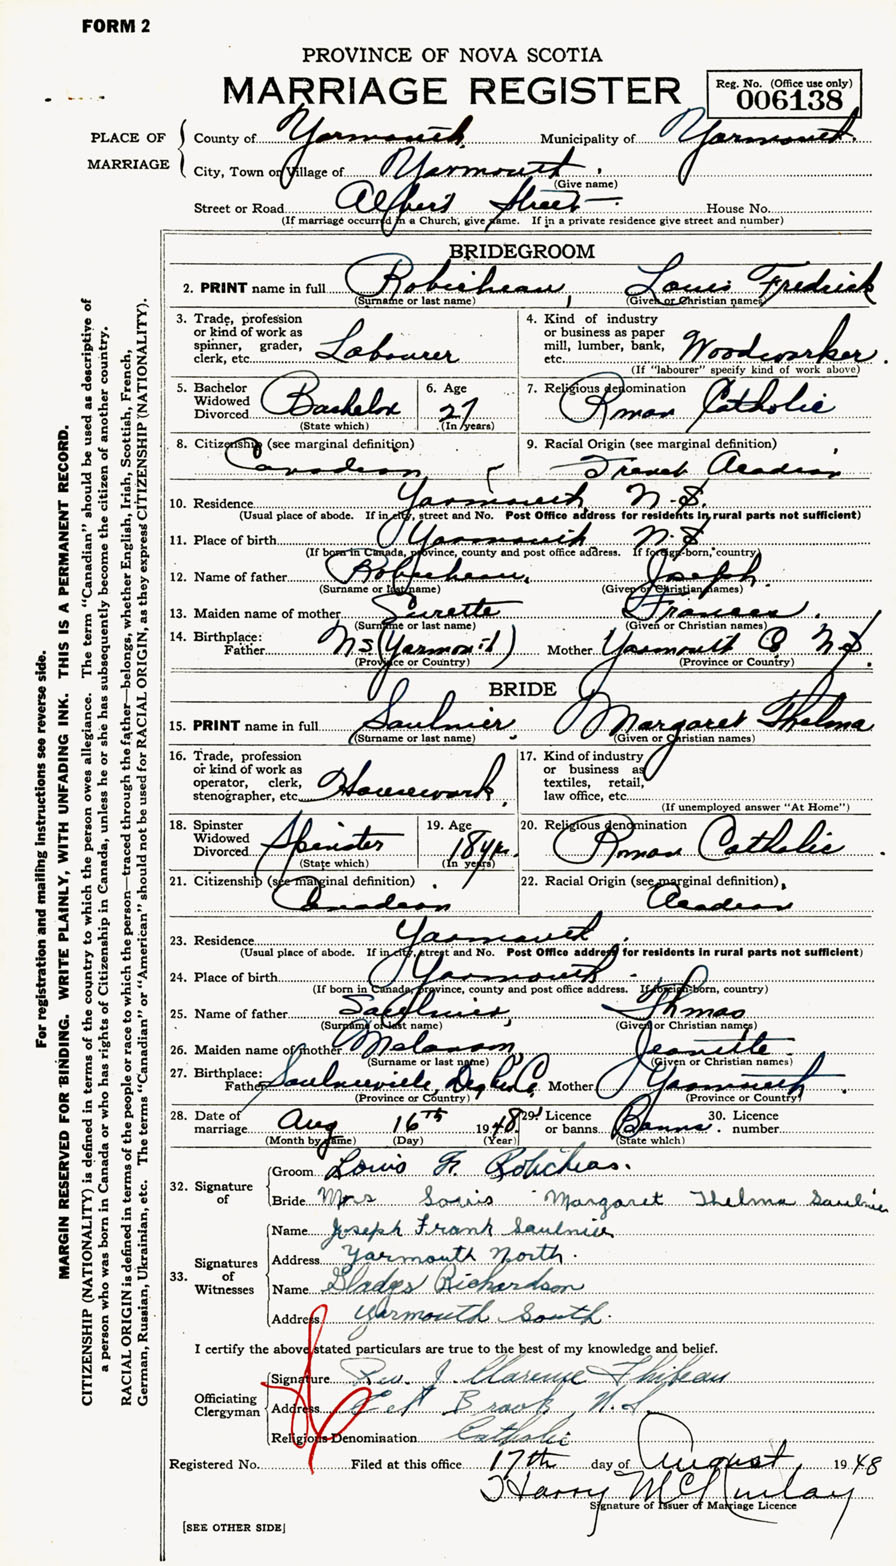 FORM 2
PROVINCE OF NOVA SCOTIA
MARRIAGE REGISTER
Reg. No. (Office use only)
006138
PLACE OF MARRIAGE
County of Yarmouth Municipality of Yarmouth
City, Town or Village of Yarmouth
(Give name)
Street or Road Albert Street House No.
(If marriage occurred in a Church, give name. If in a private residence give street and number)
BRIDEGROOM
2. PRINT name in full Robicheau, Louis Fredrick
(Surname or last name) (Given or Christian names)
3. Trade, profession or kind of work as spinner, grader, clerk, etc. Labourer
4. Kind of industry or business as paper mill, lumber, bank, etc. Woodworker.
(If "labourer" specify kind of work above)
5. Bachelor Widowed Divorced Bachelor
(State which)
6. Age 27
(In years)
7. Religious denomination Roman Catholic
8. Citizenship (see marginal definition)
Canadian
9. Racial Origin (see marginal definition)
French Acadian
10. Residence Yarmouth, N.S.
(Usual place of abode. If in city, street and No. Post Office address for residents in rural parts not sufficient)
11. Place of birth Yarmouth N.S
(If born in Canada, province, county and post office address. If foreign-born, country)
12. Name of father Robicheau, Joseph
(Surname or last name) (Given or Christian names)
13. Maiden name of mother Surette Frances.
(Surname or last name) (Given or Christian names)
14. Birthplace:
Father NS (Yarmouth) Mother Yarmouth Co NS
(Province or Country) (Province or Country)
BRIDE
15. PRINT name in full Saulnier, Margaret Thelma
(Surname or last name) (Given or Christian names)
16. Trade, profession or kind of work as operator, clerk, stenographer, etc. Housework
17. Kind of industry or business as textiles, retail, law office, etc.
(If unemployed answer "At Home")
18. Spinster Widowed Divorced Spinster
(State which)
19. Age 18 yrs.
(In years)
20. Religious denomination Roman Catholic
21. Citizenship (see marginal definition)
Canadian
22. Racial Origin (see marginal definition)
Acadian
23. Residence Yarmouth
(Usual place of abode. If in city, street and No. Post Office address for residents in rural parts not sufficient)
24. Place of birth Yarmouth
(If born in Canada, province, county and post office address. If foreign-born, country)
25. Name of father Saulnier, Thmas
(Surname or last name) (Given or Christian names)
26. Maiden name of mother Melanson, Jeanette
(Surname or last name) (Given or Christian names)
27. Birthplace:
Father Saulnierville, Digby Co Mother Yarmouth
(Province or Country) (Province or Country)
28. Date of marriage Aug 16th 1948
(Month by name) (Day) (Year)
29. Licence or banns Banns.
(State which)
30. Licence number
32. Signature of
Groom Louis F. Robicheau.
Bride Mrs Louis Margaret Thelma Saulnier
33. Signatures of Witnesses
Name Joseph Frank Saulnier
Address Yarmouth North.
Name Gladys Richardson
Address Yarmouth South.
I certify the above stated particulars are true to the best of my knowledge and belief.
Officiating Clergyman
Signature Rev. J. Clarence Thibeau
Address Eel Brook, N.S.
Religious Denomination Catholic
Registered No. Filed at this office 17th day of August 1948
Harry McKinlay
Signature of Issuer of Marriage Licence
[SEE OTHER SIDE]
For registration and mailing instructions see reverse side.
MARGIN RESERVED FOR BINDING. WRITE PLAINLY, WITH UNFADING INK. THIS IS A PERMANENT RECORD.
CITIZENSHIP (NATIONALITY) is defined in terms of the country to which the person owes allegiance. The term "Canadian" should be used as descriptive of
a person who was born in Canada or who has rights of Citizenship in Canada, unless he or she has subsequently become the citizen of another country.
RACIAL ORIGIN is defined in terms of the people or race to which the person—traced through the father—belongs, whether English, Irish, Scottish, French,
German, Russian, Ukrainian, etc. The terms "Canadian" or "American" should not be used for RACIAL ORIGIN, as they express CITIZENSHIP (NATIONALITY).